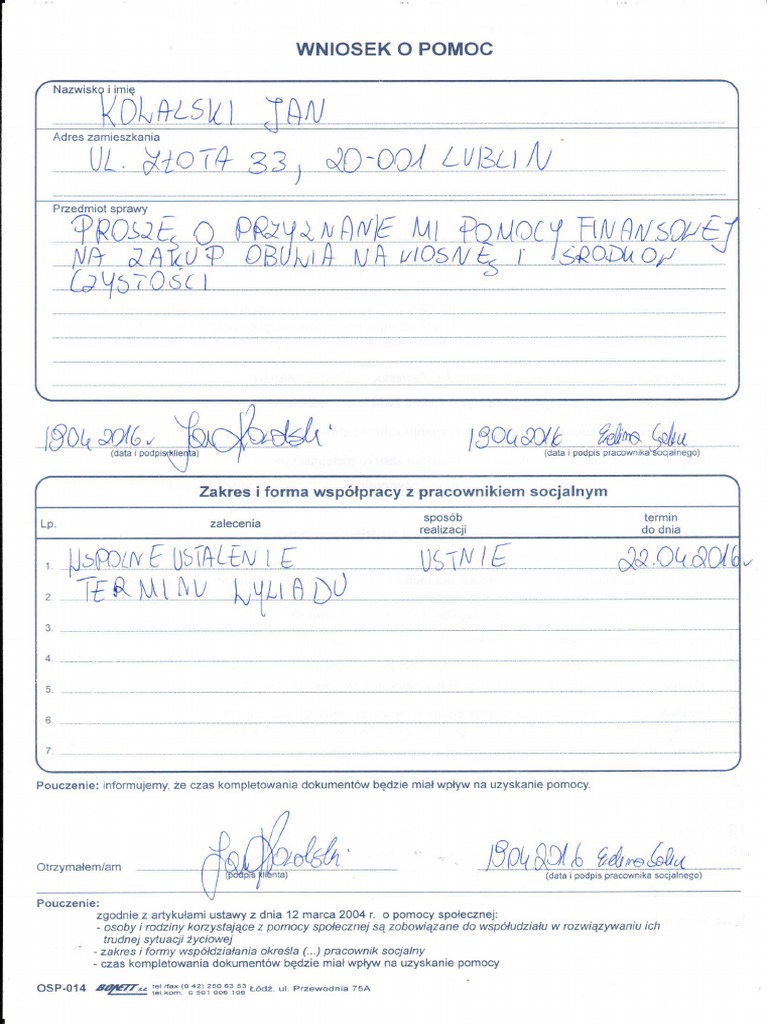 WNIOSEK O POMOC
Nazwisko i imię
KOWALSKI JAN
Adres zamieszkania
UL. ZŁOTA 33, 20-001 LUBLIN
Przedmiot sprawy
PROSZĘ O PRZYZNANIE MI POMOCY FINANSOWEJ
NA ZAKUP OBUWIA NA WIOSNĘ I ŚRODKÓW
CZYSTOŚCI
19.04.2016r Jan Kowalski 19.04.2016
(data i podpis klienta) (data i podpis pracownika socjalnego)
Zakres i forma współpracy z pracownikiem socjalnym
Lp. zalecenia sposób realizacji termin do dnia
1. WSPÓLNE USTALENIE USTNIE 22.04.2016r
2. TERMINU WYWIADU
3.
4.
5.
6.
7.
Pouczenie: informujemy, że czas kompletowania dokumentów będzie miał wpływ na uzyskanie pomocy.
Otrzymałem/am Jan Kowalski 19.04.2016
(podpis klienta) (data i podpis pracownika socjalnego)
Pouczenie:
zgodnie z artykułami ustawy z dnia 12 marca 2004 r. o pomocy społecznej:
- osoby i rodziny korzystające z pomocy społecznej są zobowiązane do współudziału w rozwiązywaniu ich
trudnej sytuacji życiowej
- zakres i formy współdziałania określa (...) pracownik socjalny
- czas kompletowania dokumentów będzie miał wpływ na uzyskanie pomocy
OSP-014 BONETT s.c. tel./fax (0 42) 250 63 53
tel.kom. 0 501 006 106 Łódź, ul. Przewodnia 75A